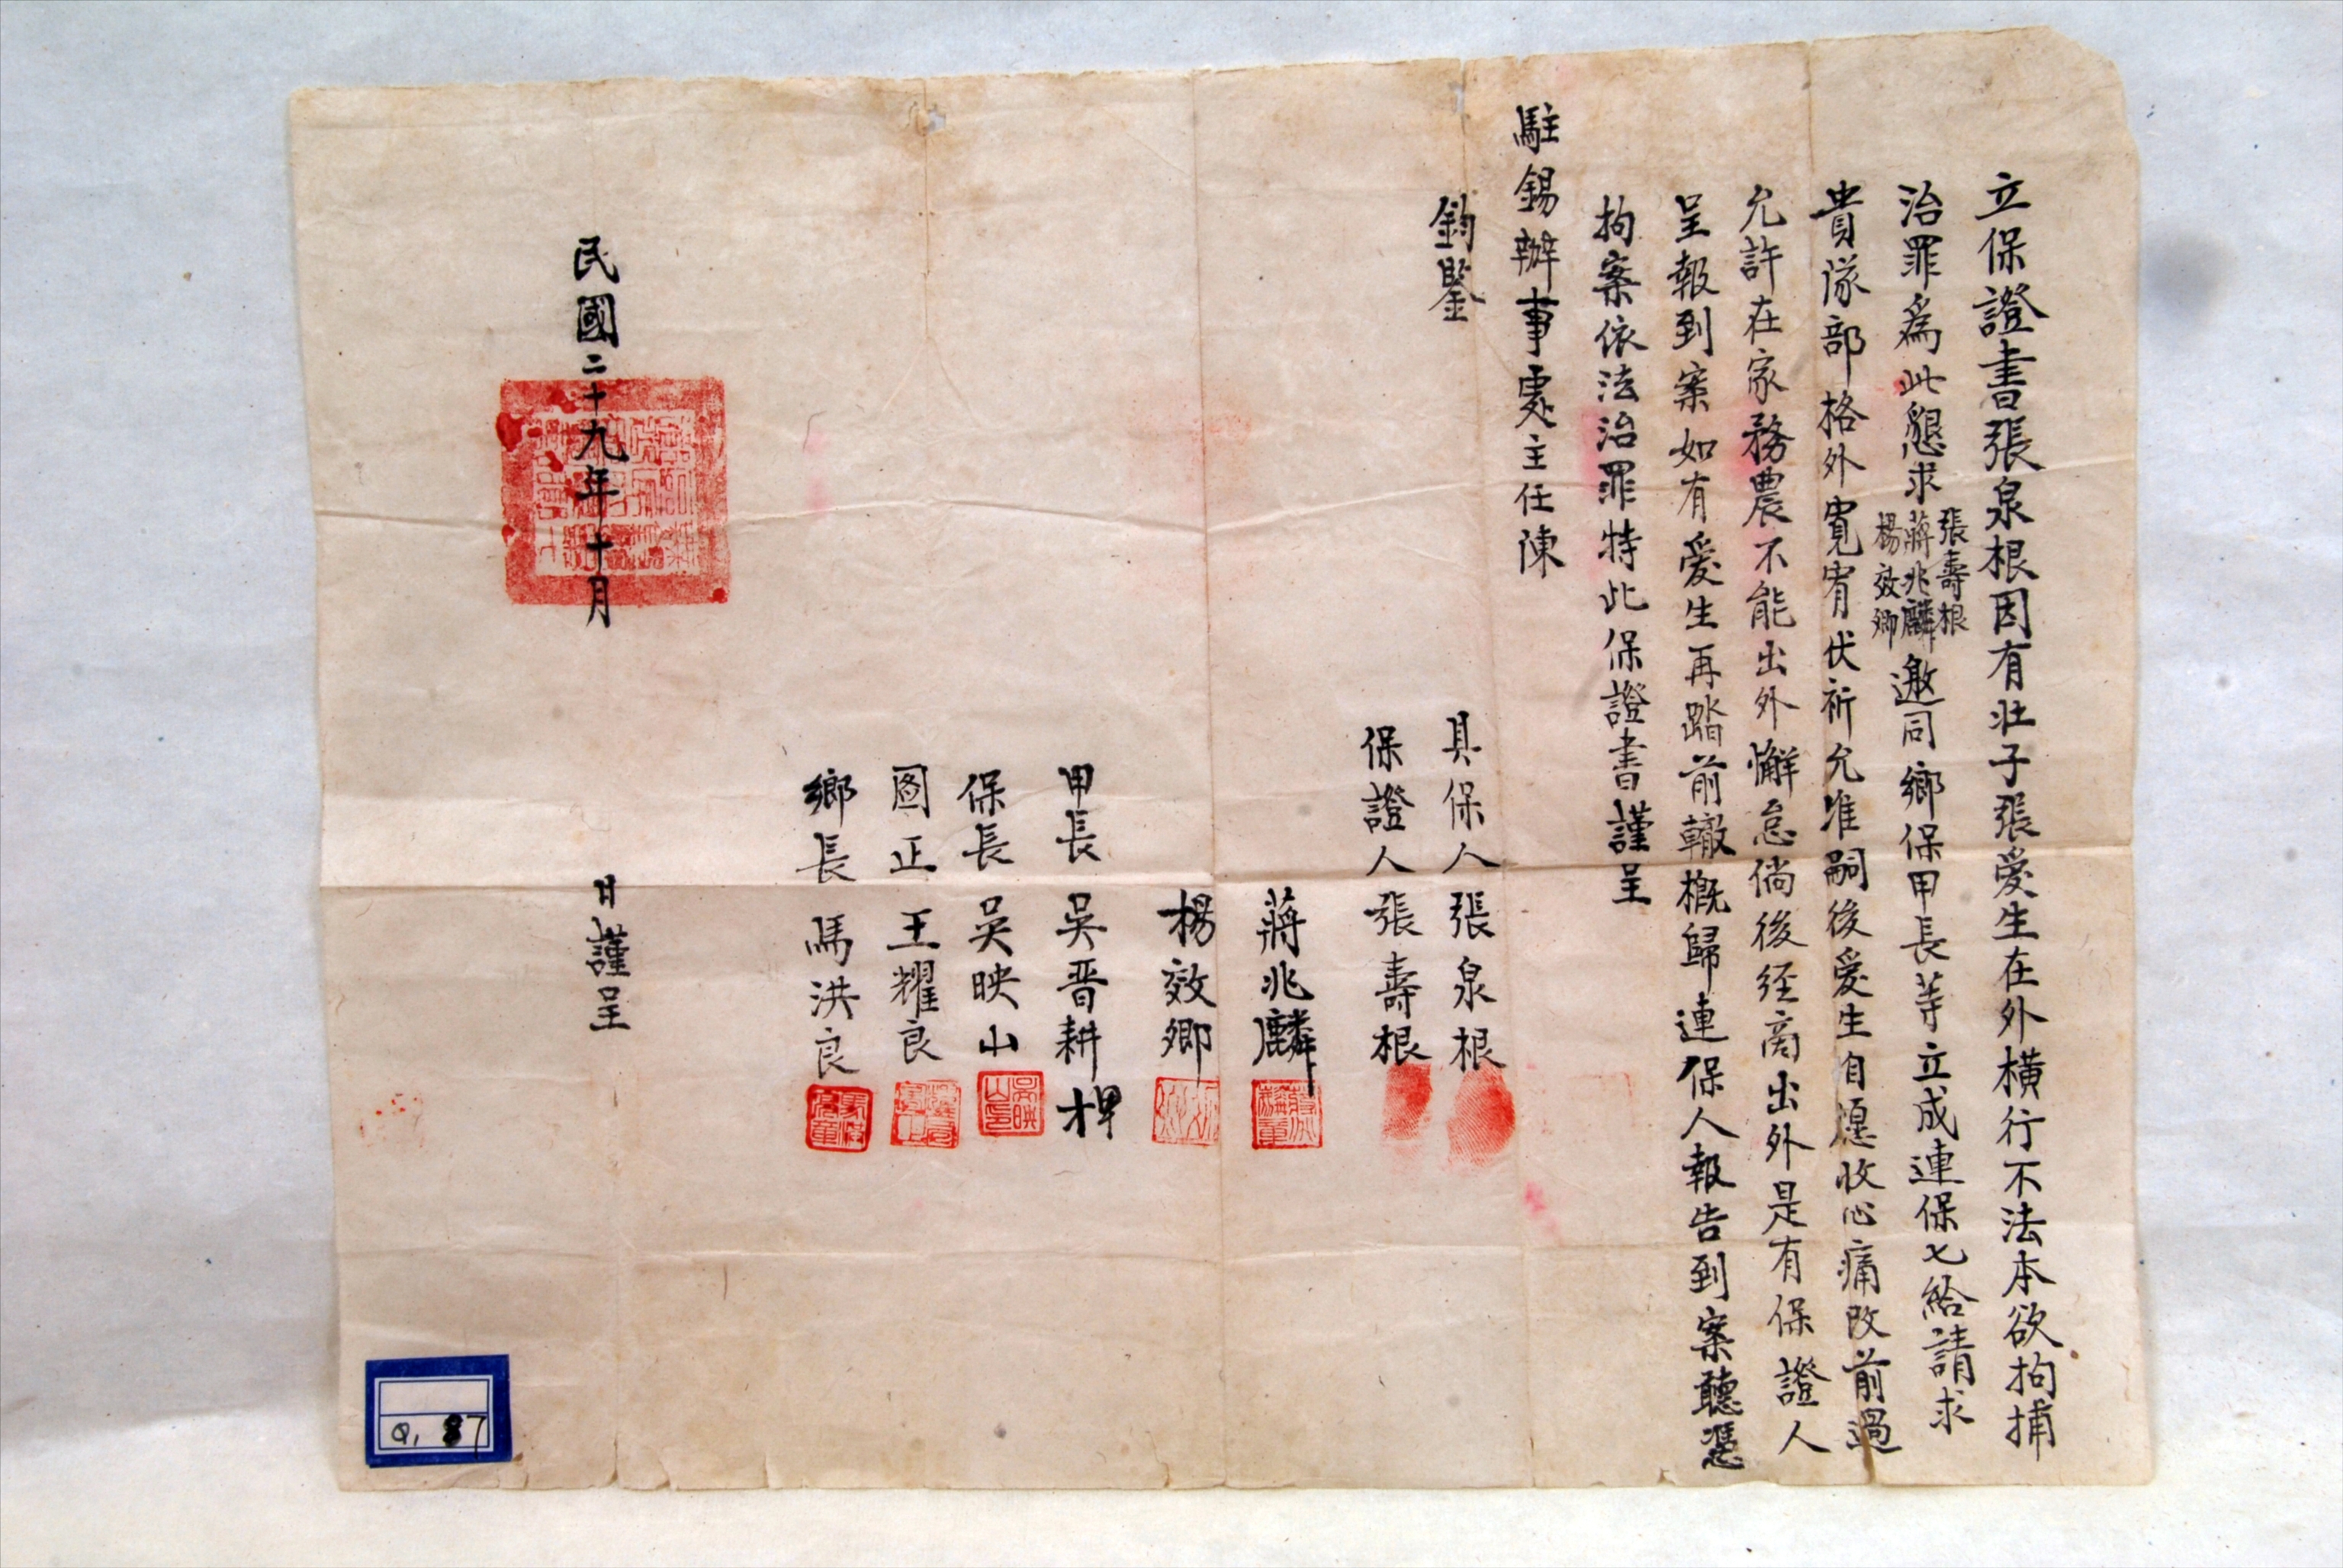 立保證書張泉根因有壯子張爱生在外橫行不法本欲拘捕
治罪爲此懇求張壽根蔣兆麟楊效卿邀同鄉保甲長等立成連保七給請求
貴隊部格外寬宥伏祈允准嗣後爱生自愿收心痛改前過
允許在家務農不能出外懈怠倘後经商出外是有保證人
呈報到案如有爱生再踏前轍概歸連保人報告到案聽憑
拘案依法治罪特此保證書謹呈
駐錫辦事處主任陳
鈞鑒
具保人張泉根
保證人張壽根
蔣兆麟
楊效卿
甲長 吳晋耕 押
保長 吳映山
圖正 王耀良
鄉長 馬洪良
民國二十九年十月 日謹呈
吳映山印
Q. 87